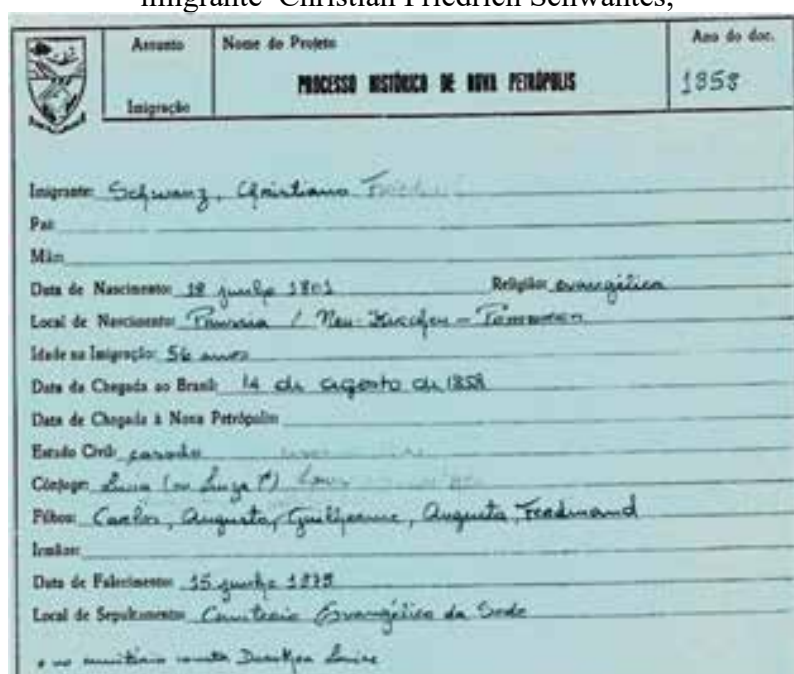 imigrante Christian Friedrich Schwantes,
Assunto
Imigração
Nome do Projeto
PROCESSO HISTÓRICO DE NOVA PETRÓPOLIS
Ano do doc.
1858
Imigrante: Schwanz, Christiano
Pai:
Mãe:
Data de Nascimento: 18 junho 1801 Religião: evangélica
Local de Nascimento: / Neu- - Pommern
Idade na Imigração: 56 anos
Data da Chegada ao Brasil: 14 de agosto de 1858
Data de Chegada à Nova Petrópolis
Estado Civil: casado
Cônjuge: Luisa (ou Luiza ?)
Filhos: Carlos, Augusto, Guilherme, Augusta, Ferdinand
Irmãos:
Data de Falecimento: 15 junho 1878
Local de Sepultamento: Cemitério Evangélico da Sede
no cemitério consta Dorothea Luise